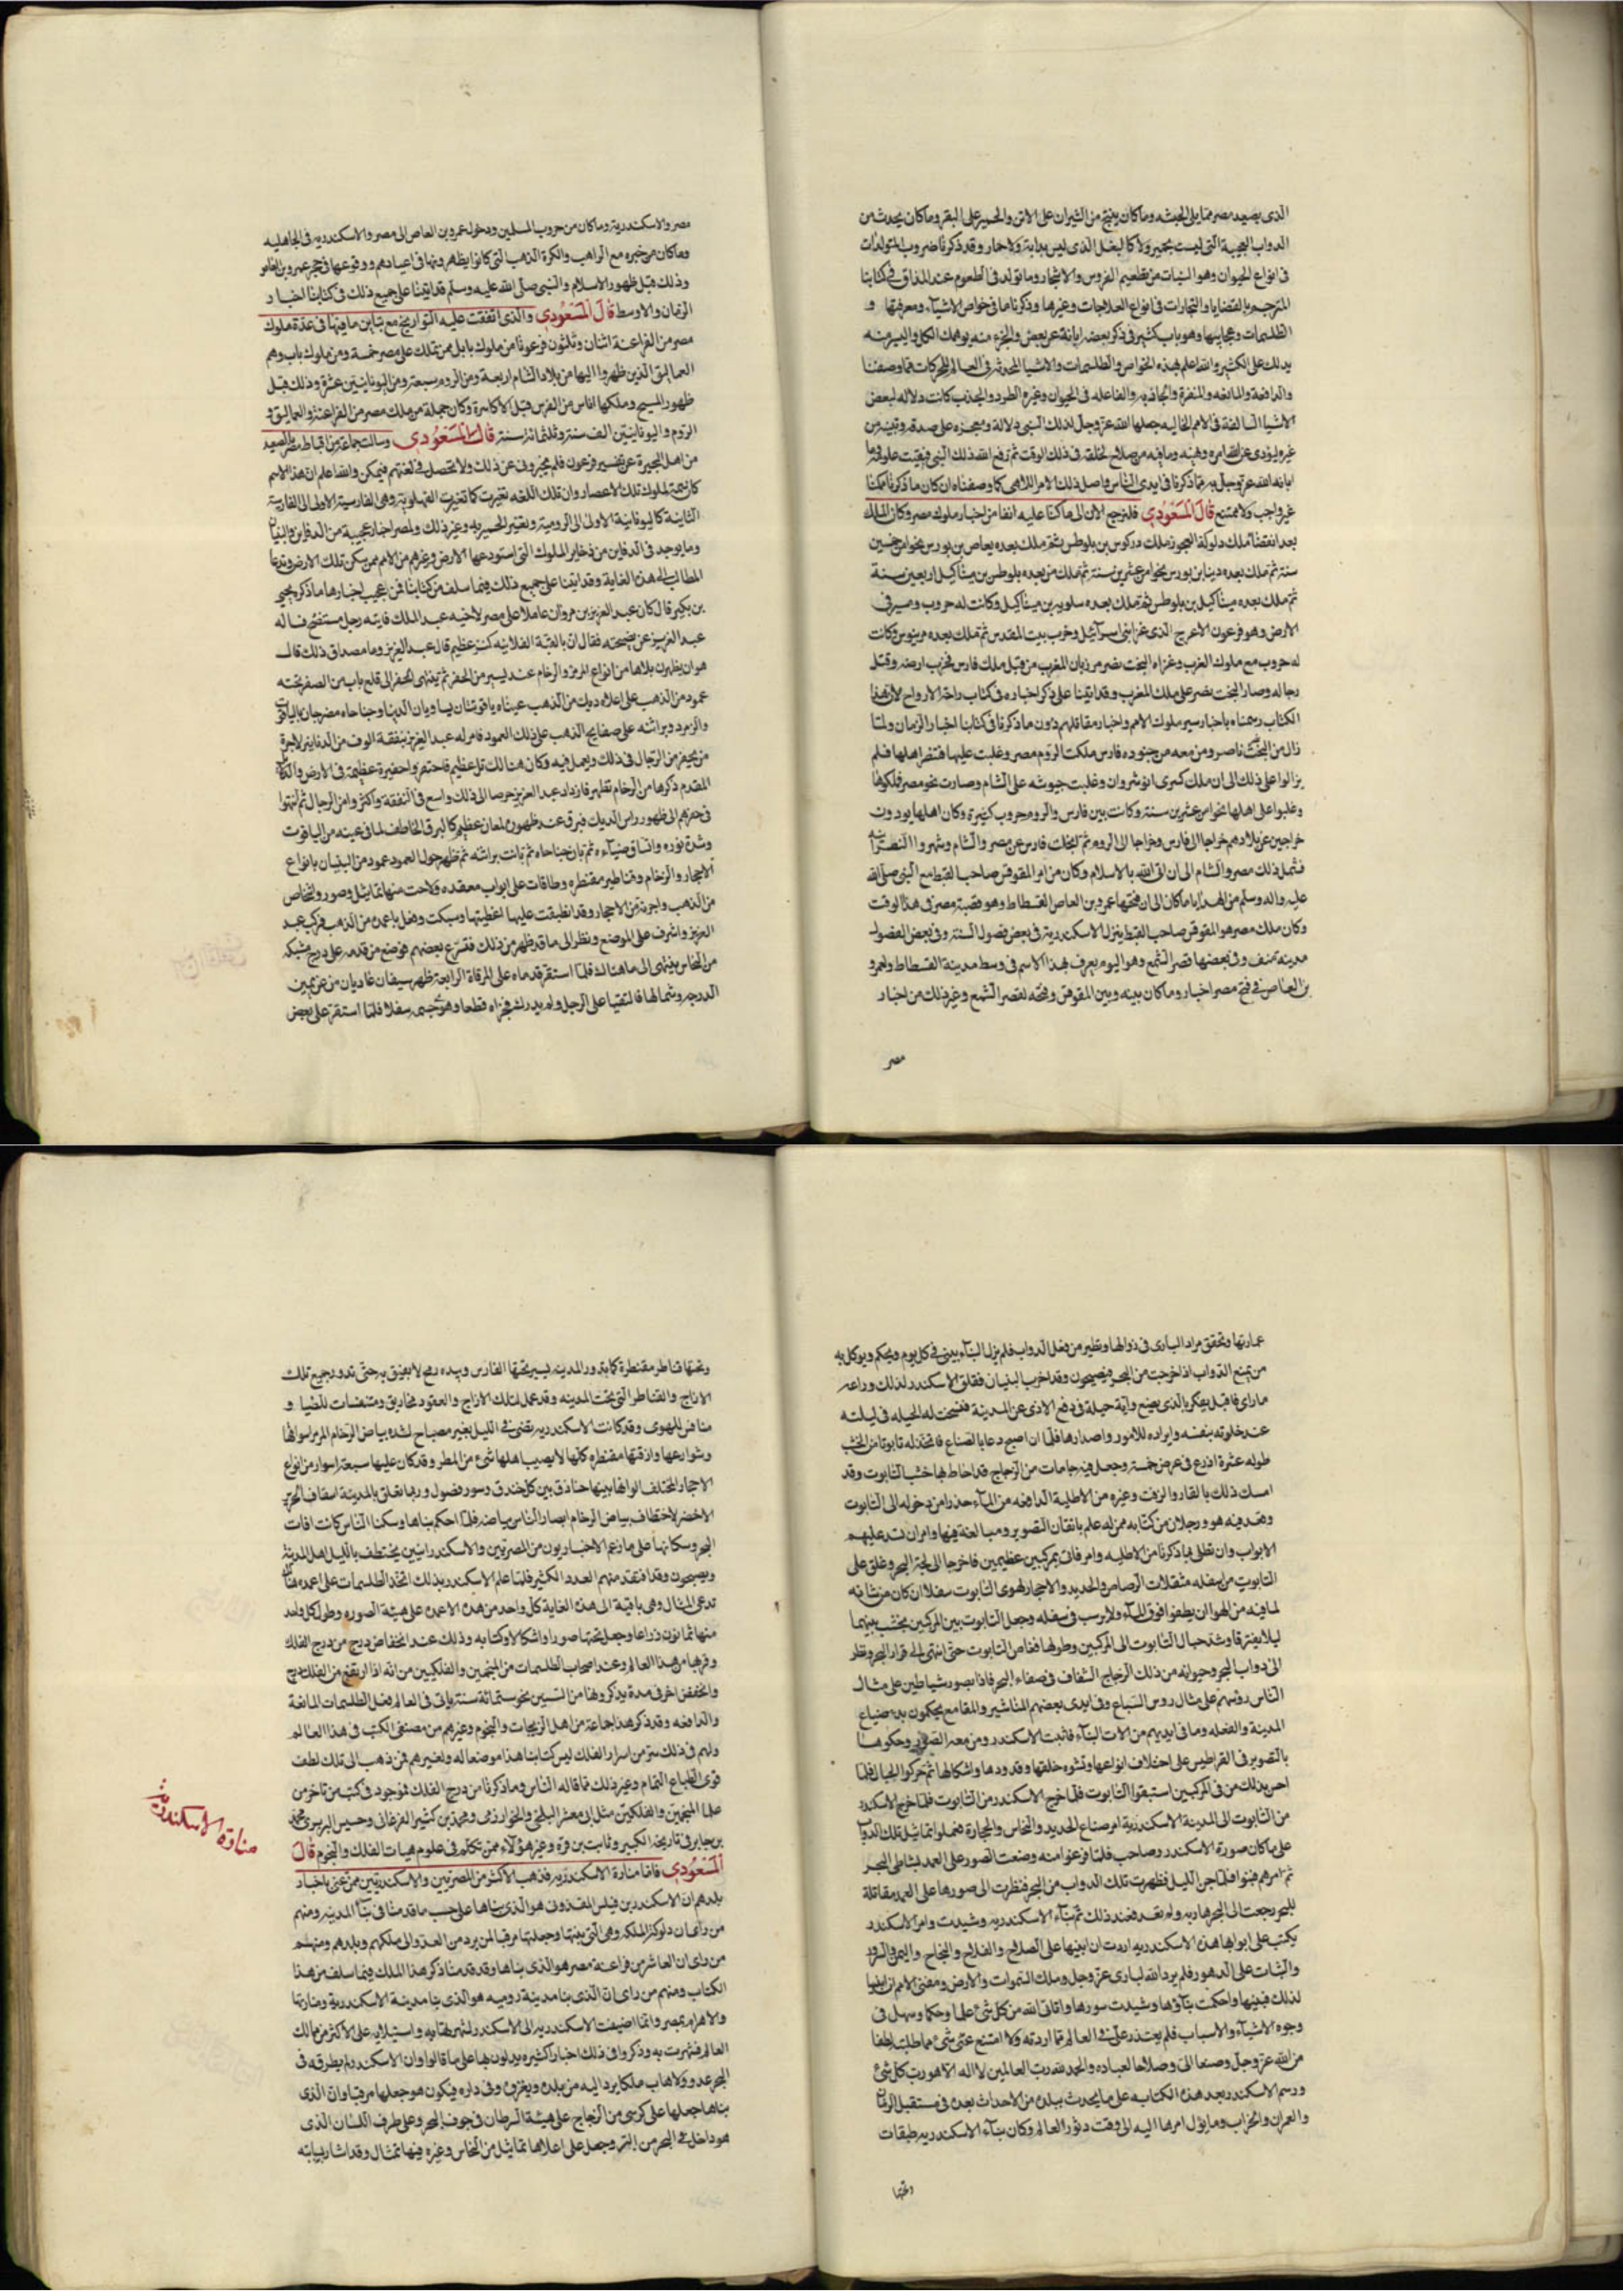 الذى بصعيد مصر مما يلى الحبشه وما كان ينتج من الثيران على الاتن والحمير على البقر وما كان يحدث من
الدواب العجيبة التى ليست بحمير ولا كالبغل الذى ليس بدابة ولا حمار وقد ذكرنا ضروب المتولدات
فى انواع الحيوان وهو النبات من تطعيم الغروس والاشجار وما تولد فى الطعوم عند المذاق فى كتابنا
المترجم بالقضايا والتجارات فى انواع الفلاحات وغيرها وذكرناما فى خواص الاشياء ومعرفتها و
الطلسمات وعجايبها وهو باب كثير فى ذكر بعضه ابانة عن بعض والجزء منه يوهمك الكل واليسير منه
يدلك على الكثير والله اعلم بهذه الخواص والطلسمات والاشيا المحدثة فى العالم للحركات مما وصفنا
والدافعة والمانعه والمنفرة والجاذبه والفاعله فى الحيوان وغيره الطرد والجذب كانت دلاله لبعض
الانبيا السالفة فى الامم الخاليه جعلها الله عز وجل لذلك النبى دلالة ومعجزه على صدقه وتبينه من
غيره ليؤدى عن الله امره ونهيه وما فيه من صلاح لخلقه فى ذلك الوقت ثم رفع الله ذلك النبى وبقيت علومه وما
ابانه الله عز وجل به مما ذكرنا فى ايدى الناس فاصل ذلك الامر اللاهى كما وصفناه ان كان ما ذكرنا ممكنا
غير واجب ولا ممتنع قال المسعودى فلنرجع الان الى ما كنا عليه انفا من اخبار ملوك مصر وكان الملك
بعد انقضا ملك دلوكة العجوز ملك دركوس بن بلوطس ثم ملك بعده يعاص بن بورس نحوا من خمسين
سنة ثم ملك بعده دينا بن بورس نحوا من عشرين سنة ثم ملك من بعده بلوطس بن ميناكيل اربعين سنة
ثم ملك بعده ميناكيل بن بلوطس ثم ملك بعده سلوبيه بن ميناكيل وكانت له حروب ومسير فى
الارض وهو فرعون الاعرج الذى غزا بنى اسرآئيل وخرب بيت المقدس ثم ملك بعده مرينوس وكانت
له حروب مع ملوك الغرب وغزاه البخت نصر مرزبان المغرب من قبل ملك فارس فخرب ارضه وقتل
رجاله وصار البخت نصر على ملك المغرب وقد اتينا على ذكر اخباره فى كتاب راحة الارواح لان هذا
الكتاب رسمناه باخبار سير ملوك الامم واخبار مقاتلهم دون ما ذكرنا فى كتابنا اخبار الزمان ولما
زال من البخت ناصر ومن معه من جنوده فارس ملكت الروم مصر وغلبت عليها فتنصر اهلها فلم
يزالوا على ذلك الى ان ملك كسرى انوشروان وغلبت جيوشه على الشام وصارت نحو مصر فملكوها
وغلبوا على اهلها نحوا من عشرين سنة وكانت بين فارس والروم حروب كثيرة وكان اهلها يودون
خراجين عن بلادهم خراجا الى فارس وخراجا الى الروم ثم انجلت فارس عن مصر والشام وشهروا النصرانيه
فشمل ذلك مصر والشام الى ان اتى الله بالاسلام وكان من امر المقوقس صاحب القبط مع النبى صلى الله
عليه واله وسلم من الهدايا ما كان الى ان فتحها عمرو بن العاص الفسطاط وهو قصبة مصر فى هذا الوقت
وكان ملك مصر هو المقوقس صاحب القبط ينزل الاسكندرية فى بعض فصول السنة وفى بعض الفصول
مدينة منف وفى بعضها قصر الشمع وهو اليوم يعرف بهذا الاسم فى وسط مدينة الفسطاط ولعمرو
بن العاص فى فتح مصر اخبار وما كان بينه وبين المقوقس وفتحه لقصر الشمع وغير ذلك من اخبار
مصر
مصر والاسكندرية وما كان من حروب المسلمين ودخول عمرو بن العاص الى مصر والاسكندريه فى الجاهليه
وما كان من خبره مع الراهب والكرة الذهب التى كانوا يظهرونها فى اعيادهم ووقوعها فى حجر عمرو بن العاص
وذلك قبل ظهور الاسلام والنبى صلى الله عليه وسلم قد اتينا على جميع ذلك فى كتابنا اخبار
الزمان والاوسط قال المسعودى والذى اتفقت عليه التواريخ مع تباين ما فيها فى عدة ملوك
مصر من الفراعنة اثنان وثلثون فرعونا من ملوك بابل ممن تملك على مصر خمسة ومن ملوك باب وهم
العماليق الذين ظهروا اليها من بلاد الشام اربعة ومن الروم سبعة ومن اليونانيين عشرة وذلك قبل
ظهور المسيح وملكها اناس من الفرس قبل الاكاسرة وكان جملة من ملك مصر من الفراعنة والعماليق و
الروم واليونانيين الف سنة وثلثمائة سنة قال المسعودى وسالت جماعة من اقباط مصر بالصعيد
من اهل الخبرة عن تفسير فرعون فلم يخبرونى عن ذلك ولا تحصل فى لغتهم فيمكن والله اعلم ان هذا الاسم
كان سمة لملوك تلك الاعصار وان تلك اللغه تغيرت كما تغيرت الفهلوية وهى الفارسية الاولى الى الفارسية
الثانية كاليونانية الاولى الى الرومية وتغيير الحميريه وغير ذلك ولمصر اخبار عجيبة من الدفاين والبنيان
وما يوجد فى الدفاين من ذخاير الملوك التى استودعها الارض وغيرهم من الامم ممن سكن تلك الارض وتدعا
المطالب الى هذه الغاية وقد اتينا على جميع ذلك فيما سلف من كتابنا فمن عجيب اخبارها ما ذكر يحيى
بن بكير قال كان عبد العزيز بن مروان عاملا على مصر لاخيه عبد الملك فاتاه رجل مستنصح فساله
عبد العزيز عن نصيحته فقال ان بالقبة الفلانيه كنز عظيم قال عبد العزيز وما مصداق ذلك قال
هو ان يظهر لنا بلاط من انواع المرمر والرخام عند يسير من الحفر ثم ينتهى الحفر الى قلع باب من الصفر تحته
عمود من الذهب على اعلاه ديك من الذهب عيناه ياقوتتان يساويان الدنيا وجناحاه مضرجان بالياقوت
والزمرد وبراثنه على صفايح الذهب على ذلك العمود فامر له عبد العزيز بنفقة الوف من الدنانير لاجرة
من يحفر من الرجال فى ذلك ويعمل فيه وكان هنالك تل عظيم فاحتفروا حفيرة عظيمة فى الارض والدلائل
المقدم ذكرها من الرخام تظهر فازداد عبد العزيز حرصا الى ذلك واسع فى النفقة واكثر وامن الرجال ثم انتهوا
فى حفرهم الى ظهور راس الديك فبرق عند ظهوره لمعان عظيم كالبرق الخاطف لما فى عينه من الياقوت
وشدة نوره واتساق ضيآءه ثم بان جناحاه ثم بانت براثنه ثم ظهر حول العمود عمود من البنيان بانواع
الاحجار والرخام وقناطير مقنطره وطاقات على ابواب معقده ولاحت منها تماثيل وصور واشخاص
من الذهب واجرنة من الاحجار وقد اطبقت عليها اغطيتها وسبكت وقفل باعمدة من الذهب فركب عبد
العزيز واشرف على الموضع ونظر الى ما قد ظهر من ذلك فتسرع بعضهم فوضع من قدمه على درج مشبكه
من النحاس ينتهى الى ما هناك فلما استقر قدماه على المرقاة الرابعة ظهر سيفان عاديان من عن يمين
الدرجه وشمالها فالتقيا على الرجل ولم يدرك فجزآه قطعا وهوى جسمه سفلا فلما استقر على بعض
عمارتها وتحقق مراد البارى فى زوالها وتطير من فعل الدواب فلم يزل البنآء يبنى فى كل يوم ويحكم ويوكل به
من يمنع الدواب اذا خرجت من البحر فيصبحون وقد اخرب البنيان فقلق الاسكندر لذلك وراعه
ما راى فاقبل يفكر بالذى يصنع واية حيلة فى دفع الاذى عن المدينة فسنحت له الحيله فى ليلته
عند خلوته بنفسه وايراده للامور واصدارها فلما ان اصبح دعا بالصناع فاتخذ له تابوتا من الخشب
طوله عشرة اذرع فى عرض خمسة وجعل فيه جامات من الزجاج قد احاط بها خشب التابوت وقد
امسك ذلك بالقار والزفت وغيره من الاطلية الدافعه من المآء حذرا من دخوله الى التابوت
وقعد فيه هو ورجلان من كتابه ممن له علم باتقان التصوير ومبالغة فيها وامر ان تسد عليهم
الابواب وان تطلى بما ذكرنا من الاطليه وامر فاتى بمركبين عظيمين فاخرجا الى لجة البحر وعلق على
التابوت من اسفله مثقلات الرصاص والحديد والاحجار لهوى التابوت سفلا ان كان من شانه
لما فيه من الهوا ان يطفوا فوق المآء ولا يرسب فى سفله وجعل التابوت بين المركبين بخشب بينهما
ليلا يفترقا وشد حبال التابوت الى المركبين وطولها فغاص التابوت حتى انتهى الى قرار البحر ونظر
الى دواب البحر وحيوانه من ذلك الزجاج الشفاف فى صفاء البحر فاذا بصور شياطين على مثال
الناس رؤسهم على مثال روس السباع وفى ايدى بعضهم المناشير والمقامع يحكون بذلك صناع
المدينة والفعله وما فى ايديهم من الات البنآء فاثبت الاسكندر ومن معه الصور وحكوها
بالتصوير فى القراطيس على اختلاف انواعها وتشوه خلقتها وقدودها واشكالها ثم حركوا الحبال فلما
احس بذلك من فى المركبين استبقوا التابوت فلما خرج الاسكندر من التابوت فلما خرج الاسكندر
من التابوت الى المدينة الاسكندرية امر صناع الحديد والنحاس والحجارة فعملوا تماثيل تلك الدواب
على ما كان صوره الاسكندر وصاحب فلما فرغوا منه وضعت الصور على العمد بشاطى البحر
ثم امرهم فبنوا فلما جن الليل فظهرت تلك الدواب من البحر فنظرت الى صورها على العمد مقاتلة
للبحر رجعت الى البحر هاربه ولم تعد فعند ذلك تم بنآء الاسكندريه وشيدت وامر الاسكندر
يكتب على ابوابها هذه الاسكندريه اردت ان ابنيها على الصلاح والفلاح والنجاح واليمن والسرور
والثبات على الدهور فلم يرد الله البارى عز وجل وملك السموات والارض ومفنى الامم ان ابنيها
لذلك فبنيتها واحكمت بنآؤها وشيدت سورها واتانى الله من كل شئ علما وحكما وسهل فى
وجوه الاشيآء والاسباب فلم يتعذر على شئ فى العالم مما اردته ولا امتنع عنى شئ مما طلبته لطفا
من الله عز وجل وصنعا الى وصلاحا لعباده والحمد لله رب العالمين لا اله الا هو رب كل شئ
ورسم الاسكندر بعد هذه الكتابه على ما يحدث ببلده من الاحداث بعده فى مستقبل الزمان
والعمران والخراب وما يؤل امرها اليه الى وقت دثور العالم وكان بنآء الاسكندريه طبقات
وتحتها
وتحتها قناطر مقنطرة كما تدور المدينه يسير تحتها الفارس وبيده رمح لا يضيق به حتى تدور جميع تلك
الازاج والقناطر التى تحت المدينه وقد عمل لتلك الازاج والعقود مخاريق ومتنفسات للضيا و
منافس للهوى وقد كانت الاسكندريه تضئ فى الليل بغير مصباح لشده بياض الرخام المرمر اسواقها
وشوارعها وازقتها مقنطره كانها لا يصيب اهلها شئ من المطر وقد كان عليها سبعة اسوار من انواع
الاحجار المختلف الوانها بينها خنادق بين كل خندق وسور فضول وربما تعلق بالمدينة اسقاف الحرير
الاخضر لاختطاف بياض الرخام ابصار الناس بياضه فلما احكم بناها وسكنا الناس كانت افات
البحر وسكانها على ما زعم الاخباريون من المصريين والاسكندرانيين يختطف بالليل اهل المدينة
ويصبحون وقد افتقد منهم العدد الكثير فلما علم الاسكندر بذلك اتخذ الطلسمات على اعمده هناك
تدعى المثال وهى باقية الى هذه الغاية كل واحد من هذه الاعمدة على هيئة الصوره وطول كل واحد
منها ثمانون ذراعا وجعل تحتها صورا واشكالا وكتابه وذلك عند انخفاض درج من درج الفلك
وقربها من هذا العالم وعند اصحاب الطلسمات من المنجمين والفلكيين من انه اذا ارتفع من الفلك درج
وانخفض اخر فى مدة يذكرونها من السنين نحو ستمائة سنة ياتى فى العالم فعل الطلسمات المانعة
والدافعه وقد ذكر هذا جماعة من اهل الزيجات والنجوم وغيرهم من مصنفى الكتب فى هذا العالم
ولهم فى ذلك سر من اسرار الفلك ليس كتابنا هذا موضعا له ولغيرهم ممن ذهب الى تلك لطف
قوى الطباع التمام وغير ذلك مما قاله الناس وما ذكرنا من درج الفلك فموجود فى كتب من تاخر من
علما المنجمين والفلكيين مثل ابى معشر البلخى والخوارزمى ومحمد بن كثير الفرغانى وحبس اليزيدى ومحمد
بن جابر فى تاريخه الكبير وثابت بن قرة وغير هؤلاء ممن تكلم فى علوم هيات الفلك والنجوم قال
المسعودى فاما منارة الاسكندريه فذهب الاكثر من المصريين والاسكندريين ممن عنى باخبار
بلدهم ان الاسكندر بن فيلبس المقذونى هو الذى بناها على حسب ما قدمنا فى بنآء المدينه ومنهم
من راى ان دلوكة الملكه وهى التى بنتها وجعلتها مرقبا لمن يرد من العدو الى ملكهم وبلدهم ومنهم
من راى ان العاشر من فراعنة مصر هو الذى بناها وقد قدمنا ذكر هذا الملك فيما سلف من هذا
الكتاب ومنهم من راى ان الذى بنا مدينة روميه هو الذى بنا مدينة الاسكندرية ومنارتها
والاهرام بمصر وانما اضيفت الاسكندريه الى الاسكندر لشهرتها به واستيلايه على الاكثر من ممالك
العالم فشهرت به وذكروا فى ذلك اخبارا كثيره يدلون بها على ما قالوا وان الاسكندر لم يطرقه فى
البحر عدو ولا هاب ملكا يرد اليه من بلده ويغزوه وفى داره فيكون هو جعلها مرقبا وان الذى
بناها جعلها على كرسى من الزجاج على هيئة السرطان فى جوف البحر وعلى طرف اللسان الذى
هو داخل فى البحر من البر وجعل على اعلاها تماثيل من النحاس وغيره فيها تمثال وقد اشار بسبابته
منارة الاسكندرية